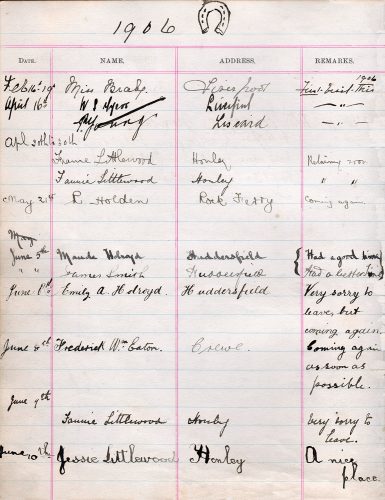 1906
DATE. NAME. ADDRESS. REMARKS.
1906
Feb 16th 19th Miss Brady. Liverpool First Visit this
April 16th W P Liverpool — " —
P Young Liscard — " —
Apl 30th to 30th
Fannie Littlewood Honley Returning soon
Fannie Littlewood Honley " "
May 2nd R. Holden Rock Ferry Coming again.
May
June 5th Maude Holroyd Huddersfield Had a good time
" " James Smith Huddersfield Had a better one
June 8th Emily A. Holroyd Huddersfield Very sorry to
leave, but
coming again.
June 8th Frederick Wm Eaton. Crewe. Coming again
as soon as
possible.
June 9th
Fannie Littlewood Honley Very sorry to
leave.
June 10th Jessie Littlewood Honley A nice
place.